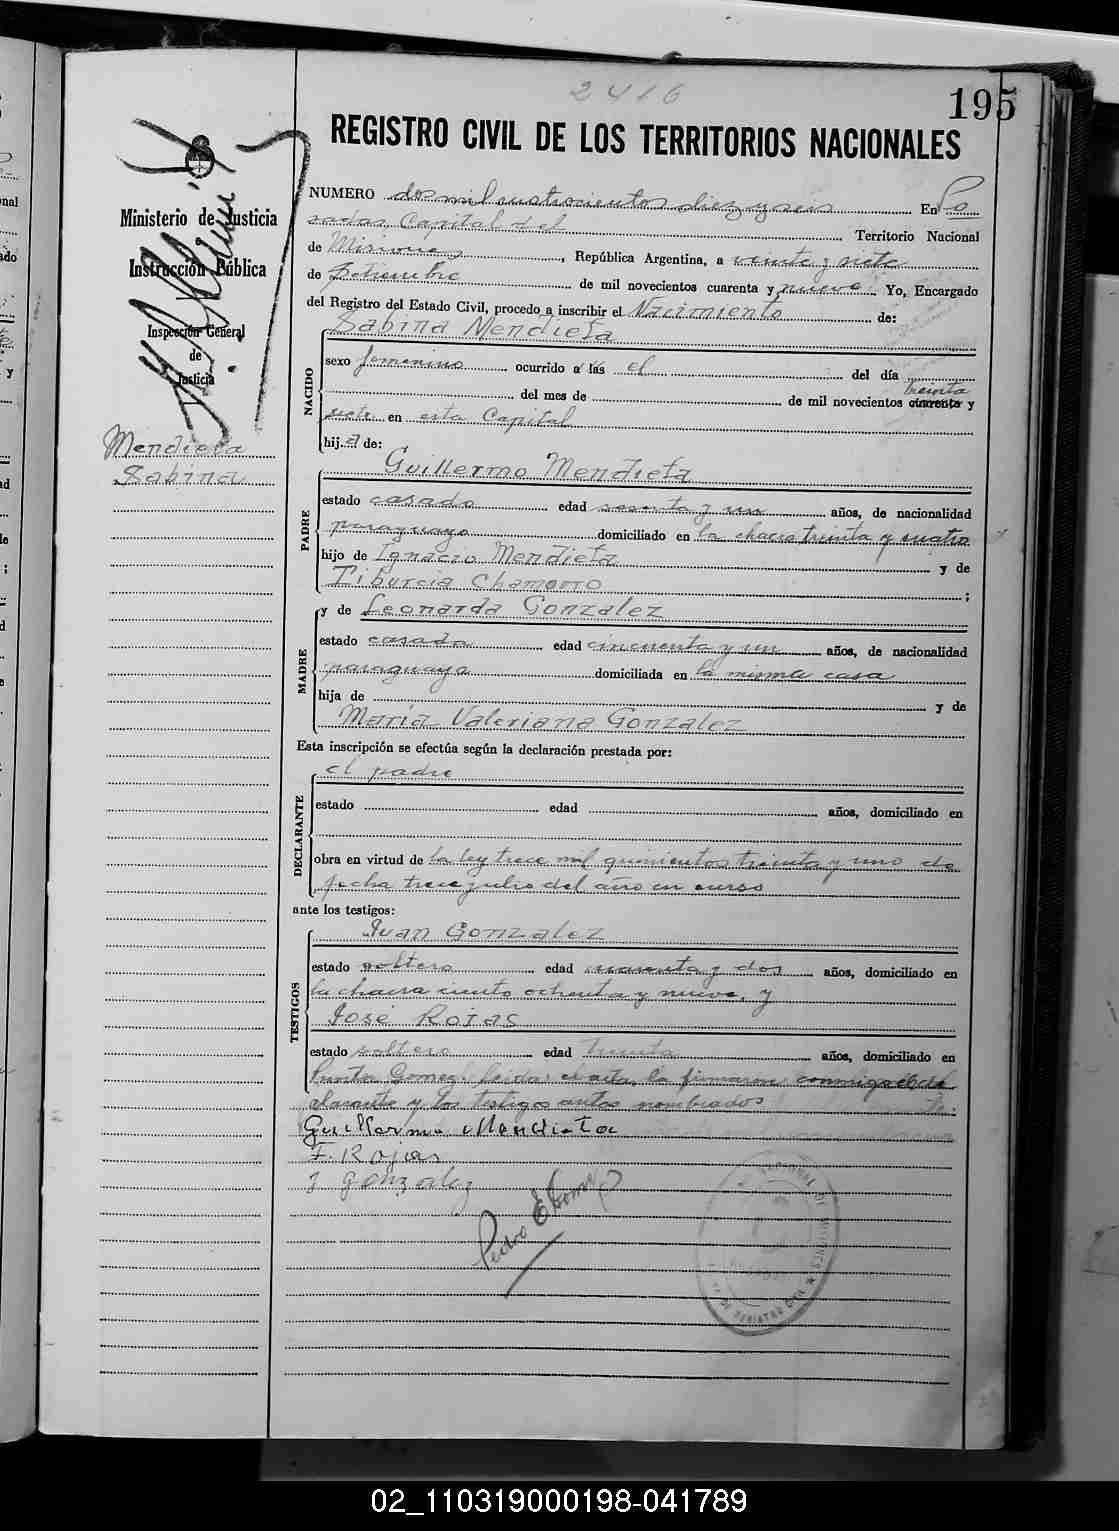 2416
195
REGISTRO CIVIL DE LOS TERRITORIOS NACIONALES
Ministerio de Justicia
Instrucción Pública
Inspección General
de
Justicia
Mendieta
Sabina
NUMERO dos mil cuatrocientos diez y seis En Po
sadas Capital del Territorio Nacional
de Misiones, República Argentina, a veinte y siete
de Setiembre de mil novecientos cuarenta y nueve. Yo, Encargado
del Registro del Estado Civil, procedo a inscribir el Nacimiento de:
NACIDO
Sabina Mendieta
sexo femenino ocurrido a las el del día
del mes de de mil novecientos cuarenta y
treinta
siete en esta Capital
hija de:
PADRE
Guillermo Mendieta
estado casado edad sesenta y un años, de nacionalidad
paraguayo domiciliado en la chacra treinta y cuatro
hijo de Ignacio Mendieta y de
Tiburcia Chamorro;
MADRE
y de Leonarda Gonzalez
estado casada edad cincuenta y un años, de nacionalidad
paraguaya domiciliada en la misma casa
hija de y de
María Valeriana Gonzalez
Esta inscripción se efectúa según la declaración prestada por:
DECLARANTE
el padre
estado edad años, domiciliado en
obra en virtud de la ley trece mil quinientos treinta y uno de
fecha trece julio del año en curso
ante los testigos:
TESTIGOS
Juan Gonzalez
estado soltero edad cuarenta y dos años, domiciliado en
la chacra ciento ochenta y nueve, y
José Rojas
estado soltero edad treinta años, domiciliado en
Punta Gomez leida el acta, la firmaron conmigo el de
clarante y los testigos antes nombrados
Guillermo Mendieta
F. Rojas
J Gonzalez
Pedro E Gomez
02_110319000198-041789